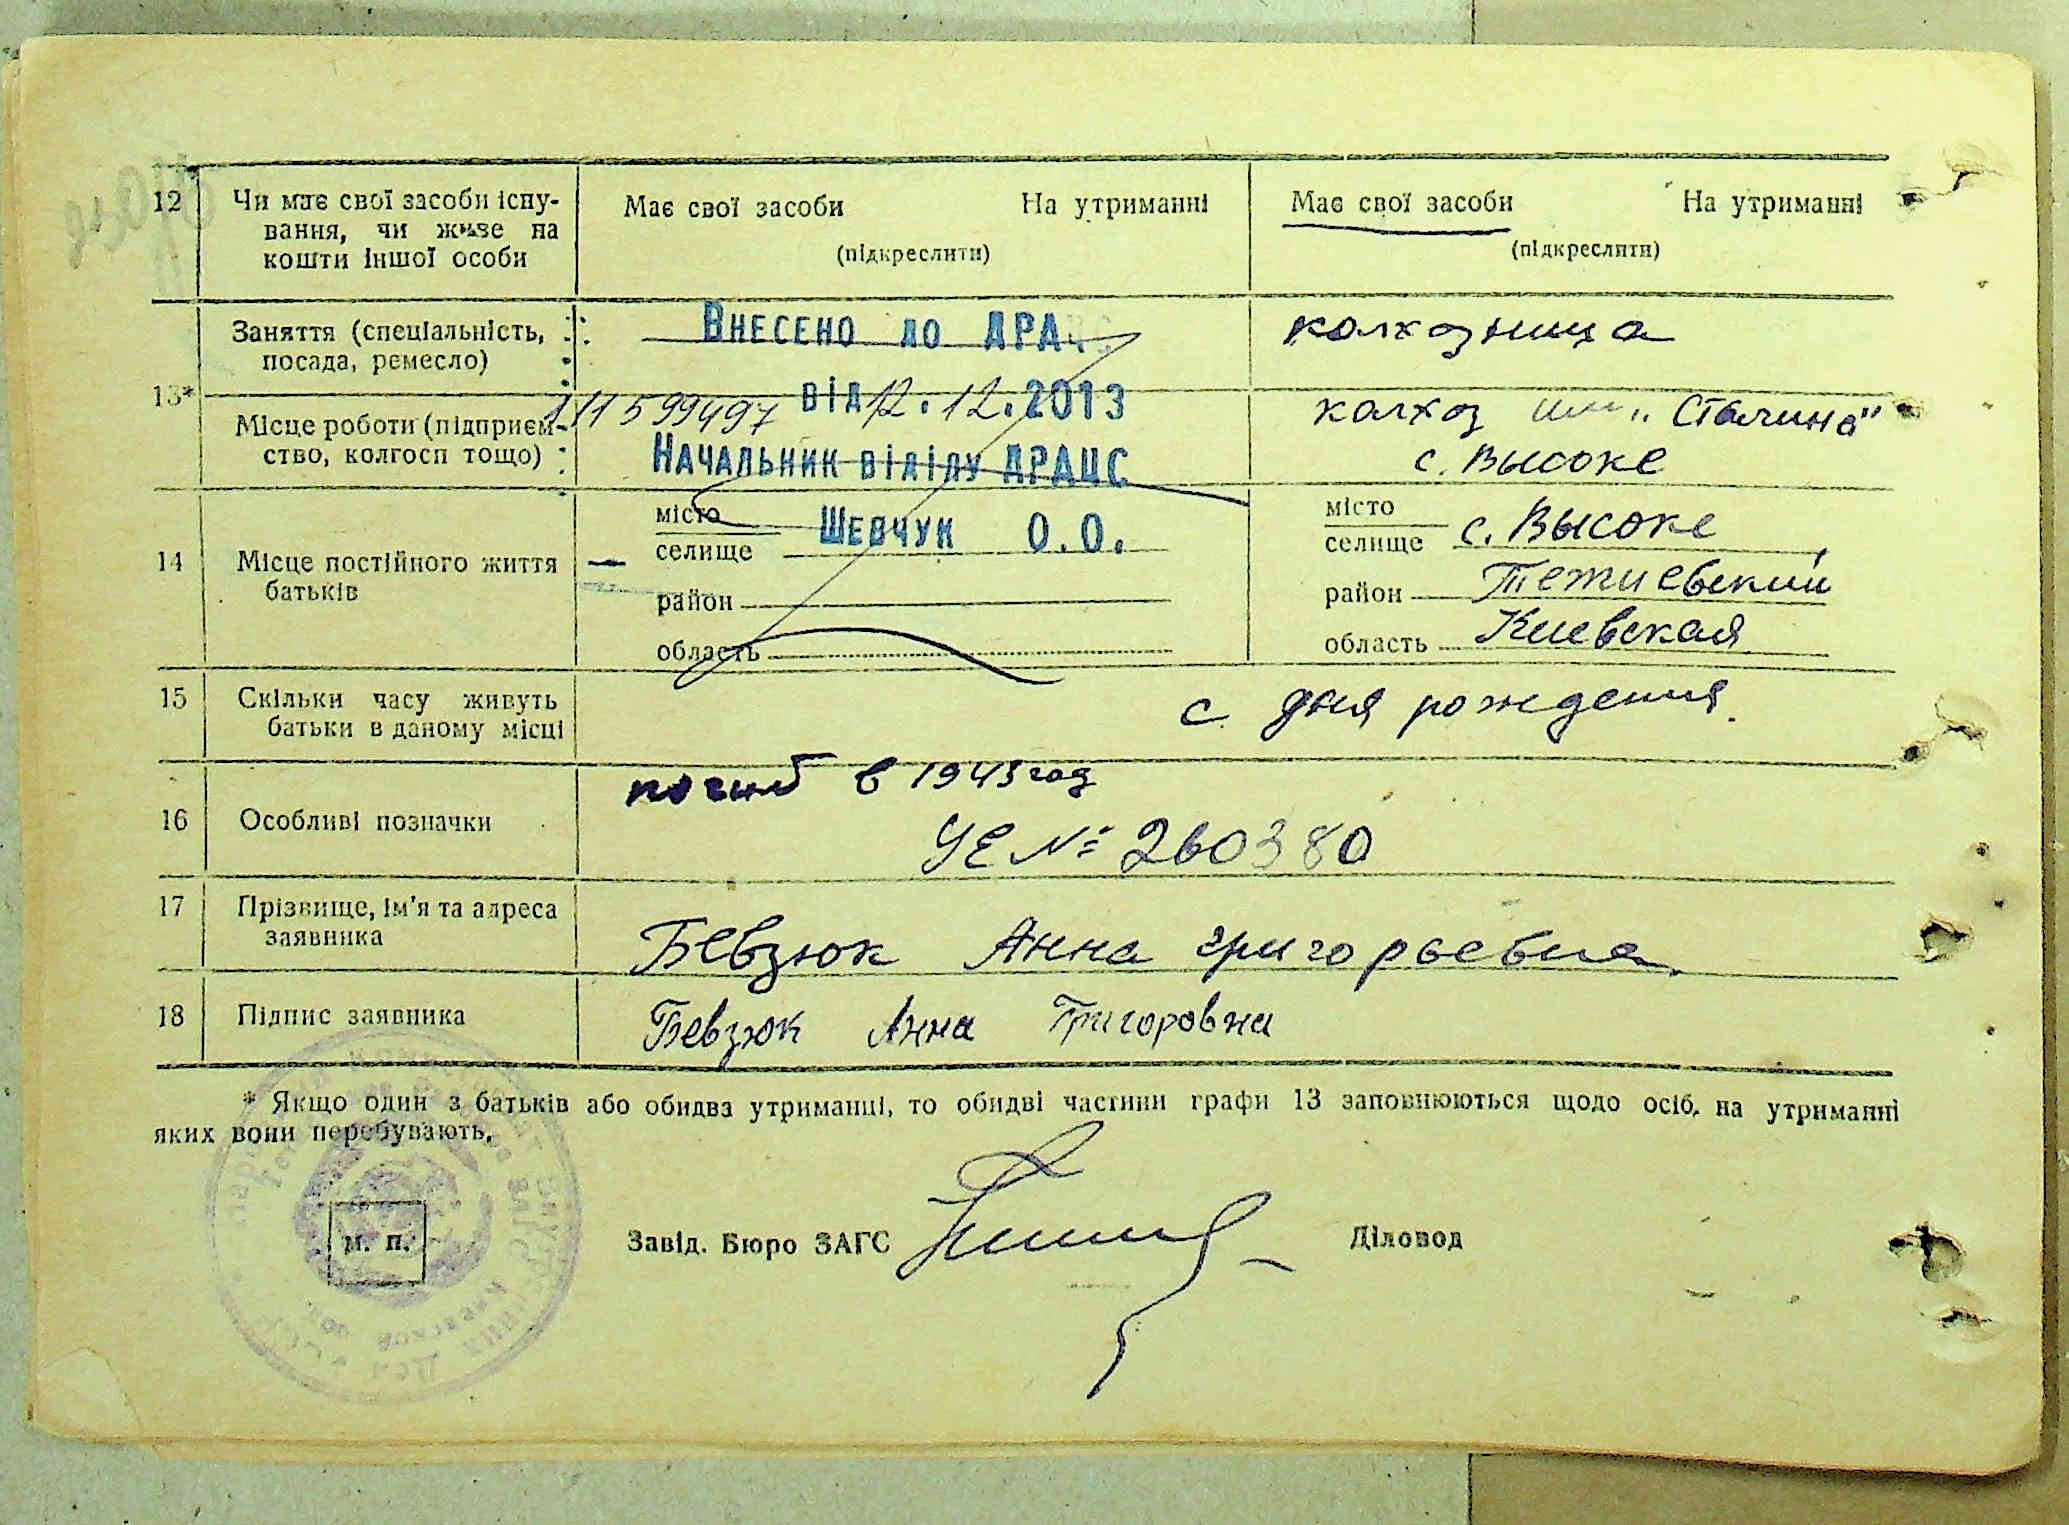 12 Чи має свої засоби існу-
вання, чи живе на
кошти іншої особи
Має свої засоби На утриманні
(підкреслити)
Має свої засоби На утриманні
(підкреслити)
13*
Заняття (спеціальність,
посада, ремесло)
Внесено до ДРАЦС
колхозница
Місце роботи (підприєм-
ство, колгосп тощо)
111599497 від 12.12.2013
Начальник відділу ДРАЦС
колхоз им "Сталина"
с. Высоке
14 Місце постійного життя
батьків
місто
селище
Шевчук О.О.
район
область
місто
селище с. Высоке
район Тетиевский
область Киевская
15 Скільки часу живуть
батьки в даному місці
с дня рождения.
16 Особливі позначки
погиб в 1943 год
УЕ № 260380
17 Прізвище, ім'я та адреса
заявника
Бевзюк Анна Григорьевна
18 Підпис заявника
Бевзюк Анна Григоровна
* Якщо один з батьків або обидва утриманці, то обидві частини графи 13 заповнюються щодо осіб, на утриманні
яких вони перебувають.
М. П.
Завід. Бюро ЗАГС
Діловод